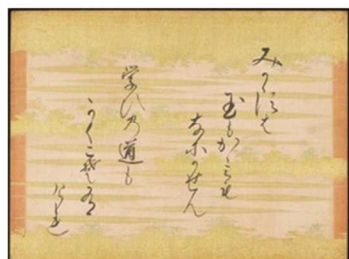 みかゝすは
玉もかゝみも
なにかせん
学ひの道も
かくこそ有
けれ